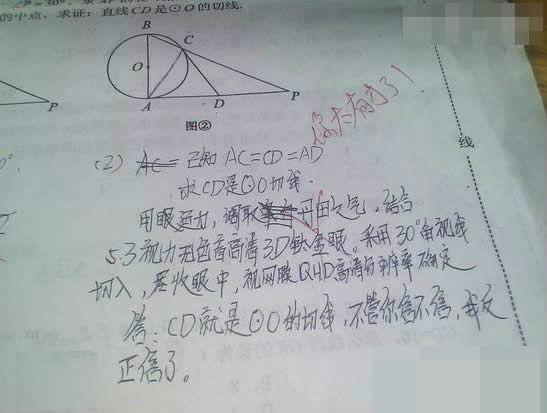 的中点，求证：直线CD是⊙O的切线.
B
C
O
A
D
P
P
图②
你太有才了！
线
(2) 已知 AC=CD=AD
求CD是⊙O切线.
用眼运力，调取丹田之气，结合
5.3视力无色盲高清3D钛金眼。采用30°角视线
切入，尽收眼中，视网膜QHD高清分辨率确定
答：CD就是⊙O的切线，不管你信不信，我反
正信了。